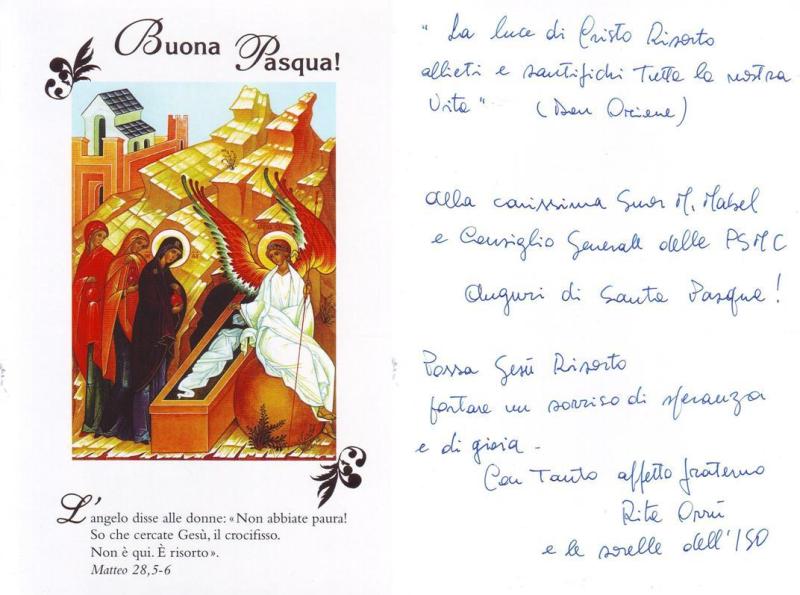 Buona Pasqua!
L'angelo disse alle donne: «Non abbiate paura!
So che cercate Gesù, il crocifisso.
Non è qui. È risorto».
Matteo 28,5-6
" La luce di Cristo Risorto
allieti e santifichi tutta la nostra
vita " (Don Orione)
Alla carissima Suor M. Mabel
e Consiglio Generale delle PSMC
Auguri di Santa Pasqua!
Possa Gesù Risorto
portare un sorriso di speranza
e di gioia -
Con Tanto affetto fraterno
Rita Orrù
e le sorelle dell'ISO